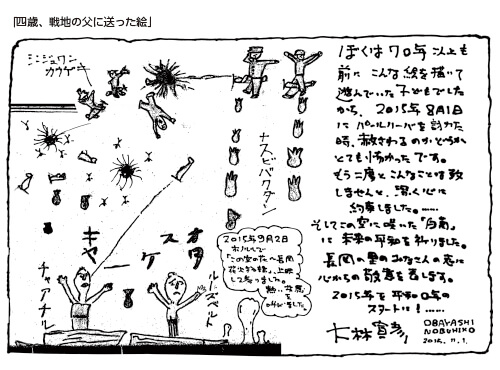 「四歳、戦地の父に送った絵」
シンジュワン
カウゲキ
ナスビバクダン
助
ケ
ス
キャー
チャアチル
ルーズベルト
2015年9月2日
ホノルルで
「この空の花－長岡
花火物語」上映
して参りました。
熱い友愛を
呼びました
ぼくは70年以上も
前にこんな絵を描いて
遊んでいた子どもでした
から、2015年8月15日
にパールハーバーを訪ねた
時、赦されるのかどうか
とても怖かったです。
もう二度とこんなことは致
しませんと、深く心に
約束しました。……
そしてこの空に咲いた「白菊」
に未来の平和を祈りました。
長岡の里のみなさんの志に
心からの敬意を表します。
2015年を平和0年の
スタートに！……
大林宣彦
OBAYASHI
NOBUHIKO
2015.11.1.